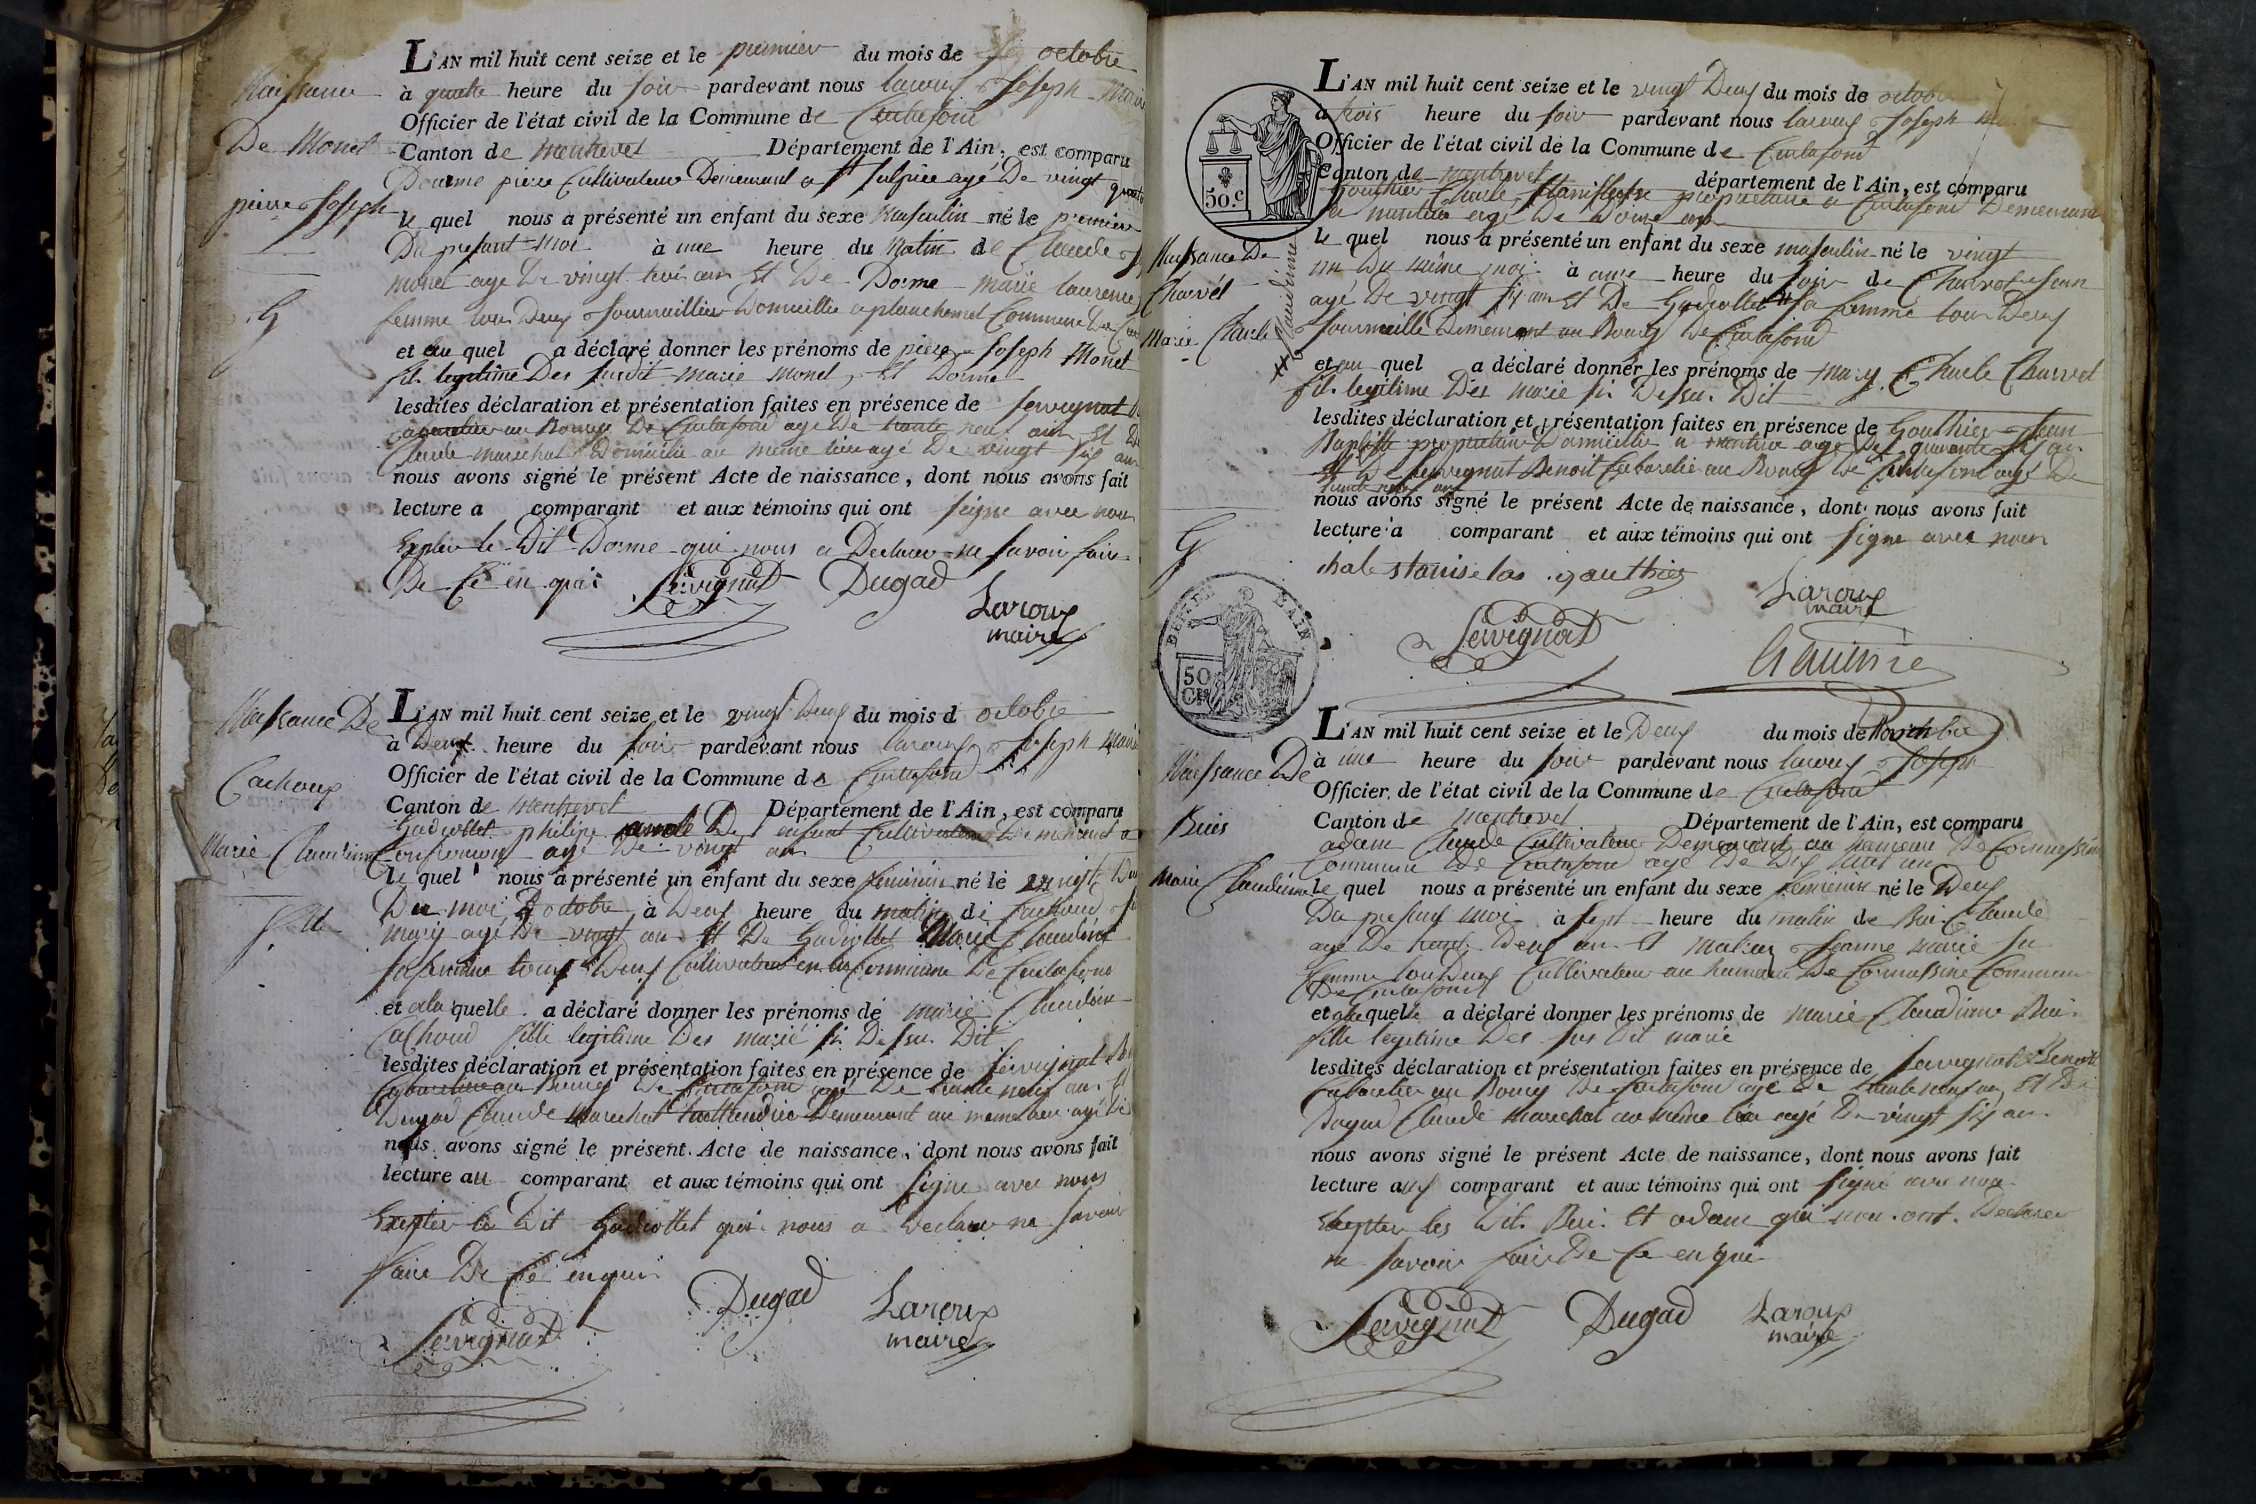 L'AN mil huit cent seize et le premier du mois de octobre
Naissance à quatre heure du soir pardevant nous laroux Joseph Maire
Officier de l'état civil de la Commune de Curtafond
De Monet Canton de montrevel Département de l'Ain, est comparu
Dorme pierre Cultivateur Demeurant a St Sulpice agé De vingt quatre
pierre Joseph le quel nous a présenté un enfant du sexe masculin né le premier
Du present moi à une heure du matin de Claude
monet age De vingt trois ans Et De Dorme marie laurence
G femme tous Deux Journaillier Domicillié a Commune De
et au quel a déclaré donner les prénoms de pierre Joseph Monet
fils legitime Des susdit marie monet, Et Dorme
lesdites déclaration et présentation faites en présence de servignat
au Bourg De Curtafond age De trente neuf ans Et De
Claude marechal Domicilié au meme lieu agé De vingt six ans
nous avons signé le présent Acte de naissance, dont nous avons fait
lecture a comparant et aux témoins qui ont signe avec nous
Excepter le Dit Dorme qui nous a Declarer ne savoir faire
De Ce en quis Servignat Dugad
Laroux
maire
Naissance De L'AN mil huit cent seize et le vingt Deux du mois d octobre
à Deux heure du soir pardevant nous laroux Joseph Maire
Officier de l'état civil de la Commune de Curtafond
Cachoux Canton de montrevel Département de l'Ain, est comparu
Gadiollet philipe De Cultivateur Demeurant a
Marie Claudine Confrancon agé De vingt ans
le quel nous a présenté un enfant du sexe feminin né le vingt Deux
Du moi D octobre à Deux heure du matin de
fille mary agé De vingt ans Et De Gadiollet Marie Claudine
sa femme tous Deux Cultivateur en la Commune De Curtafond
et a la quelle a déclaré donner les prénoms de marie Claudine
Cachoux fille legitime Des marié si Dessus Dit
lesdites déclaration et présentation faites en présence de servignat
Cabaretier au Bourg De Curtafond agé De trente neuf ans Et
Dugad Claude Marechal Demeurant au meme lieu agé De
nous avons signé le présent Acte de naissance, dont nous avons fait
lecture au comparant et aux témoins qui ont signe avec nous
Excepter le Dit Gadiollet qui nous a Declarer ne savoir
faire De Ce en quis
Servignat Dugad Laroux
maire
L'AN mil huit cent seize et le vingt Deux du mois de octobre
à trois heure du soir pardevant nous laroux Joseph maire
Officier de l'état civil de la Commune de Curtafond
Canton de montrevel département de l'Ain, est comparu
50.c
Gauthier Charle Stanislas propriétaire a Curtafond Demeurant
a agé De Douze ans
Naissance De le quel nous a présenté un enfant du sexe masculin né le vingt
un Du même moi à onze heure du soir de Charvet Jean
Charvét agé De vingt six ans Et De Gadiollet xx sa femme tous Deux
Marie Charle Journaillé Demeurant au Bourg De Curtafond
xx Claudine
et au quel a déclaré donner les prénoms de mary Charle Charvet
fils legitime Des marié si Dessus Dit
lesdites déclaration et présentation faites en présence de Gauthier Jean
Baptiste propriétaire Domicillié a agé De quarante six ans
Et De servignat Benoit Cabaretié au Bourg De Curtafond agé De
trente neuf ans
nous avons signé le présent Acte de naissance, dont nous avons fait
lecture a comparant et aux témoins qui ont signe avec nous
G
chale stanise las gauthier Laroux
maire
Servignat Gauthié
50
L'AN mil huit cent seize et le Deux du mois de Novembre
Naissance De à une heure du soir pardevant nous laroux Joseph
Officier de l'état civil de la Commune de Curtafond
Buis Canton de montrevel Département de l'Ain, est comparu
adam Claude Cultivateur Demeurant au hameau De Cornassine
Commune De Curtafond agé De Dix huit ans
Marie Claudinne le quel nous a présenté un enfant du sexe feminin né le Deux
Du present moi à sept heure du matin de Bui Claude
age De trente Deux ans Et Jeanne Marie sa
femme tou Deux Cultivateur au hameau De Cornassine Commune
De Curtafond
et a la quelle a déclaré donner les prénoms de Marie Claudinne Bui
fille legitime Des sus Dit marié
lesdites déclaration et présentation faites en présence de servignat Benoit
Cabaretier au Bourg De Curtafond agé De trente neuf ans Et De
Dugad Claude marechal au même lieu agé De vingt six ans
nous avons signé le présent Acte de naissance, dont nous avons fait
lecture aux comparant et aux témoins qui ont signé avec nous
Excepter les Dit Bui Et adam qui nou ont Declarer
ne savoir faire De Ce en qui
Servignat Dugad Laroux
maire